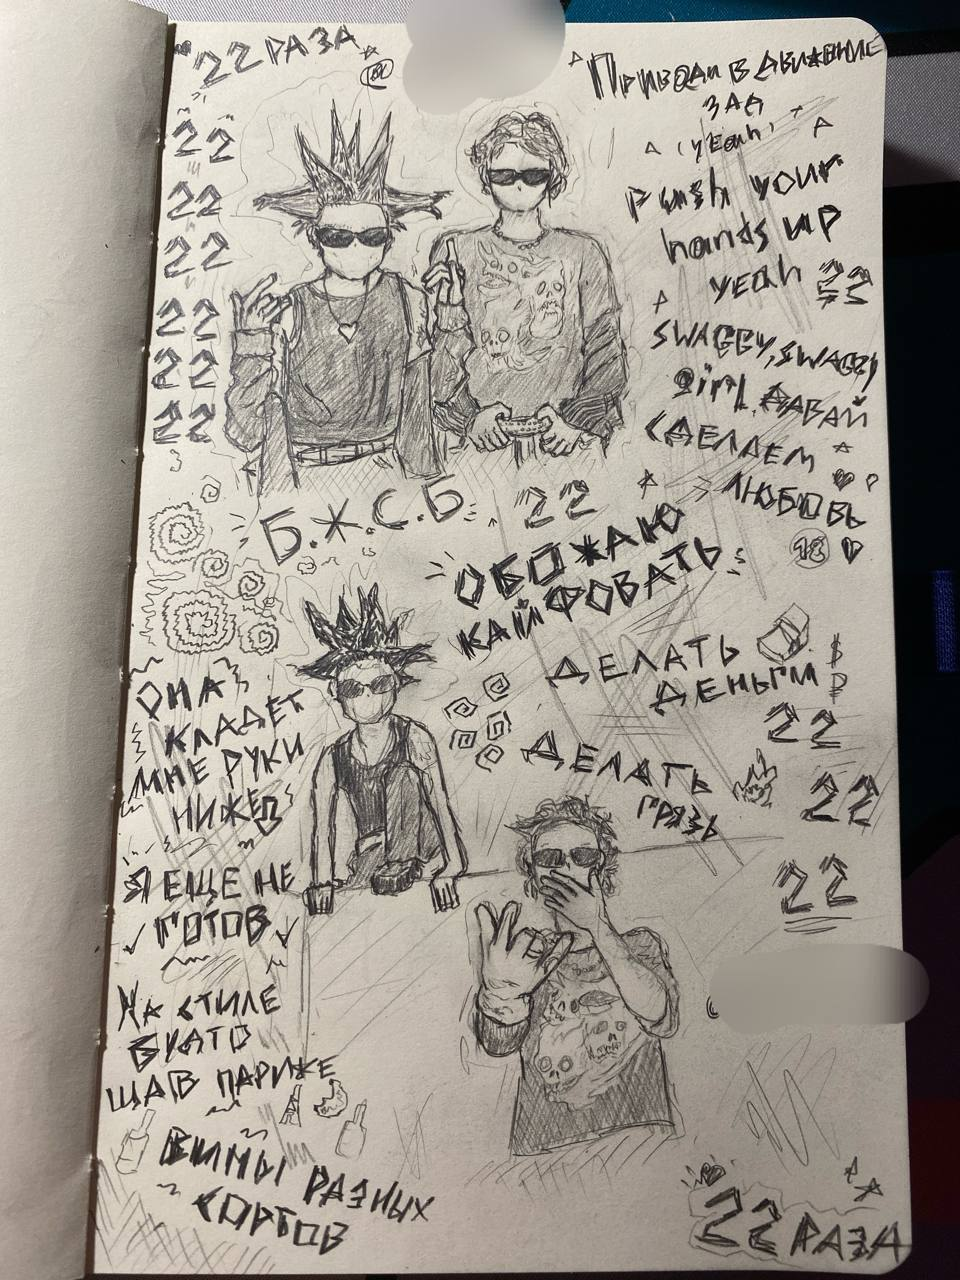 22 РАЗА
22
22
22
22
22
22
Приводи в движение
зад
(yeah)
Push your
hands up
yeah 22
SWAGGY, SWAGGY
girl, ДАВАЙ
СДЕЛАЕМ
ЛЮБОВЬ
18
Б.Ж.С.Б. 22
ОБОЖАЮ
КАЙФОВАТЬ
ДЕЛАТЬ
ДЕНЬГИ
$
₽
22
ДЕЛАТЬ
ГРЯЗЬ
22
22
ОНА
КЛАДЕТ
МНЕ РУКИ
НИЖЕ
Я ЕЩЕ НЕ
ГОТОВ
НА СТИЛЕ
БУДТО
ЩАВ ПАРИЖЕ
ВИНЫ РАЗНЫХ
СОРТОВ
22 РАЗА